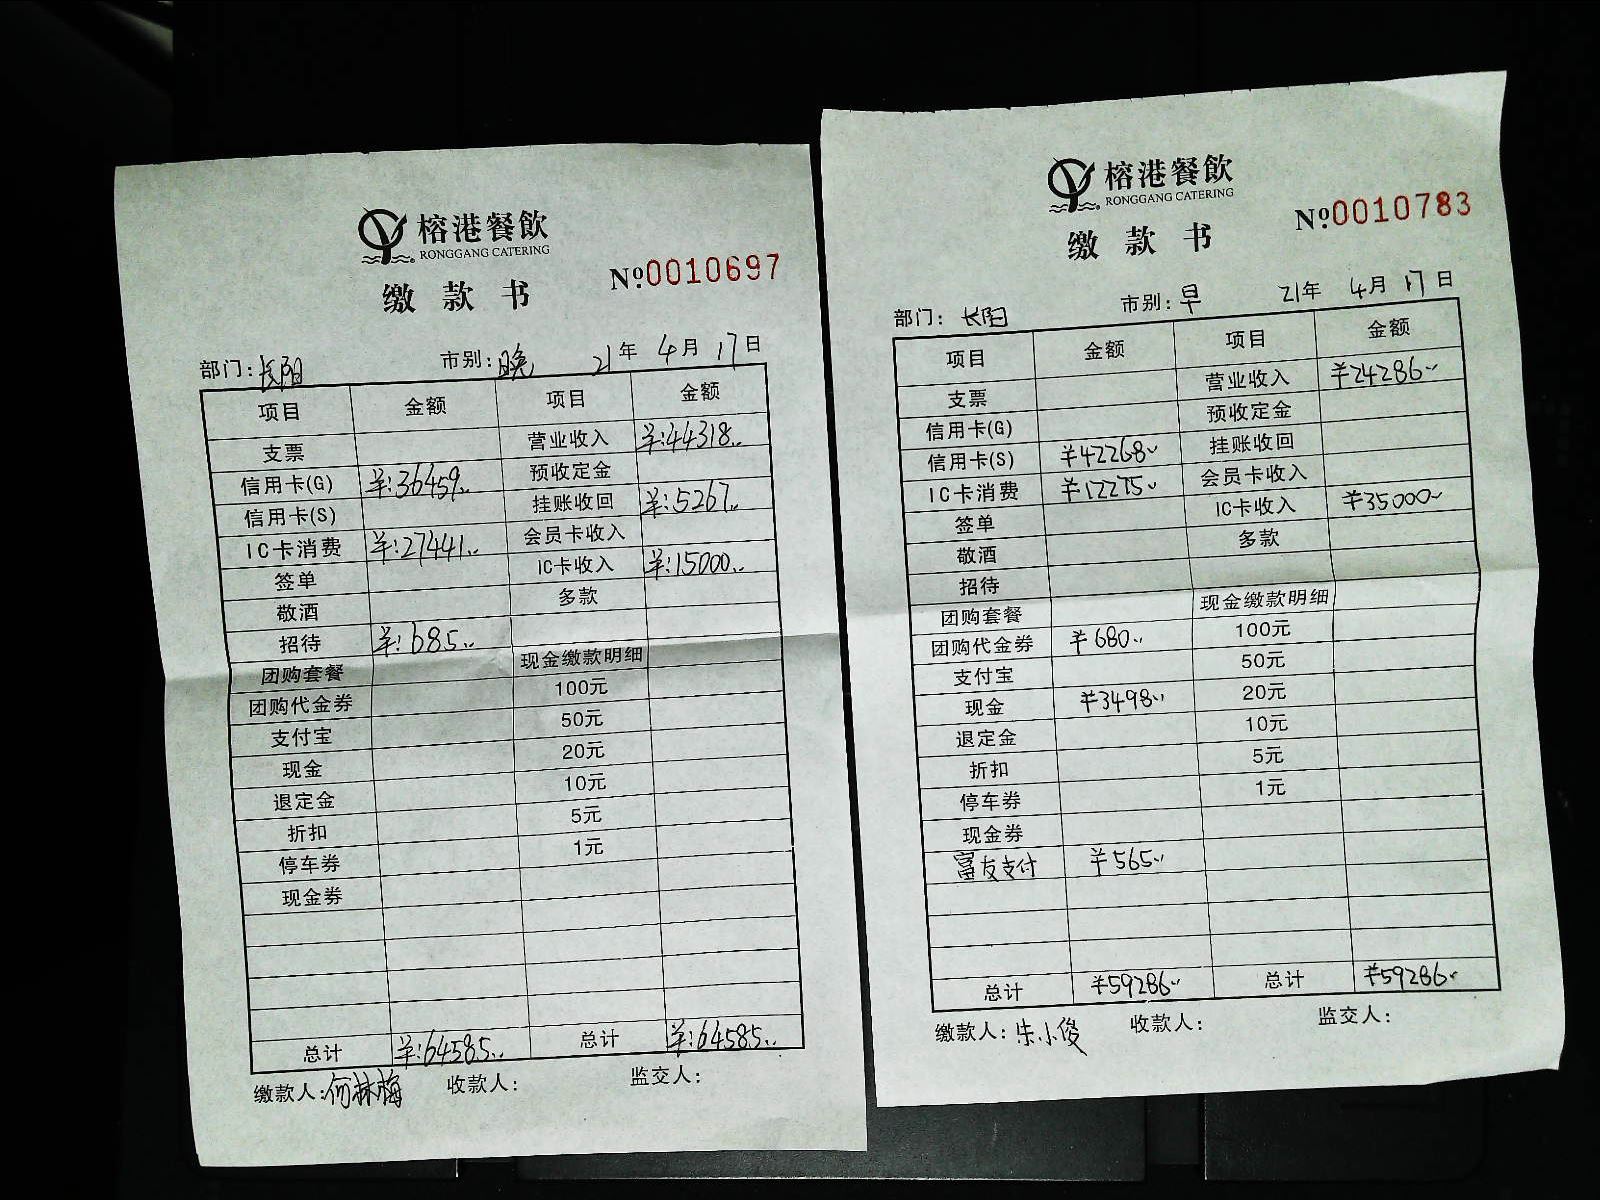 榕港餐飲
RONGGANG CATERING
缴款书
№0010697
部门:长阳 市别:晚 21年 4月 17日
项目 金额 项目 金额
支票 营业收入 ¥:44318..
信用卡(G) ¥:36459.. 预收定金
信用卡(S) 挂账收回 ¥:5267..
IC卡消费 ¥:27441.. 会员卡收入
签单 IC卡收入 ¥:15000..
敬酒 多款
招待 ¥:685..
团购套餐 现金缴款明细
团购代金券 100元
支付宝 50元
现金 20元
退定金 10元
折扣 5元
停车券 1元
现金券
总计 ¥:64585.. 总计 ¥:64585..
缴款人:何林梅 收款人: 监交人:
榕港餐飲
RONGGANG CATERING
缴款书
№0010783
部门:长阳 市别:早 21年 4月 17日
项目 金额 项目 金额
支票 营业收入 ¥24286..
信用卡(G) 预收定金
信用卡(S) ¥42268.. 挂账收回
IC卡消费 ¥12275.. 会员卡收入
签单 IC卡收入 ¥35000..
敬酒 多款
招待
团购套餐 现金缴款明细
团购代金券 ¥680.. 100元
支付宝 50元
现金 ¥3498.. 20元
退定金 10元
折扣 5元
停车券 1元
现金券
富友支付 ¥565..
总计 ¥59286.. 总计 ¥59286..
缴款人:朱小俊 收款人: 监交人: